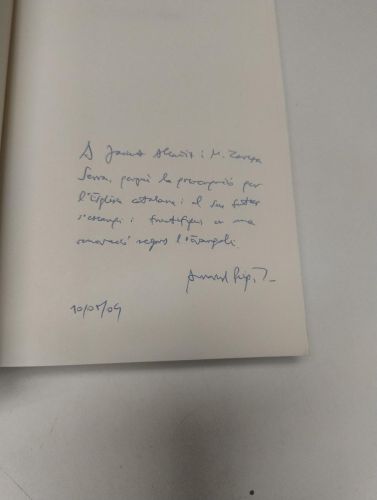 A Jaume Alcañiz i M. Teresa
Serra, perquè la preocupació per
l'Església catalana i el seu futur
s'escampi i fructifiqui en una
renovació segons l'Evangeli.
10/05/04